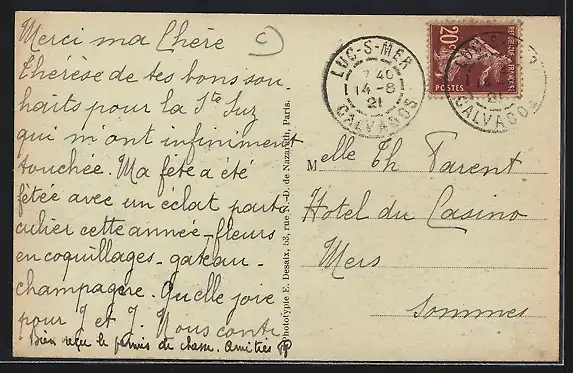 Merci ma Chère
Thérèse de tes bons sou-
haits pour la Ste Suz
qui m'ont infiniment
touchée. Ma fête a été
fêtée avec un éclat parti
culier cette année - fleurs
en coquillages - gateau -
champagne. Quelle joie
pour J et J. Nous
Bien reçu le permis de chasse. Amitiés
Phototypie E. Desaix, 63, rue N.-D. de Nazareth, Paris.
LUC-S-MER
7 40
14-8
21
CALVADOS
20c
POSTES
REPUBLIQUE FRANÇAISE
21
CALVADOS
Melle Th Parent
Hotel du Casino
Mers
Sommes